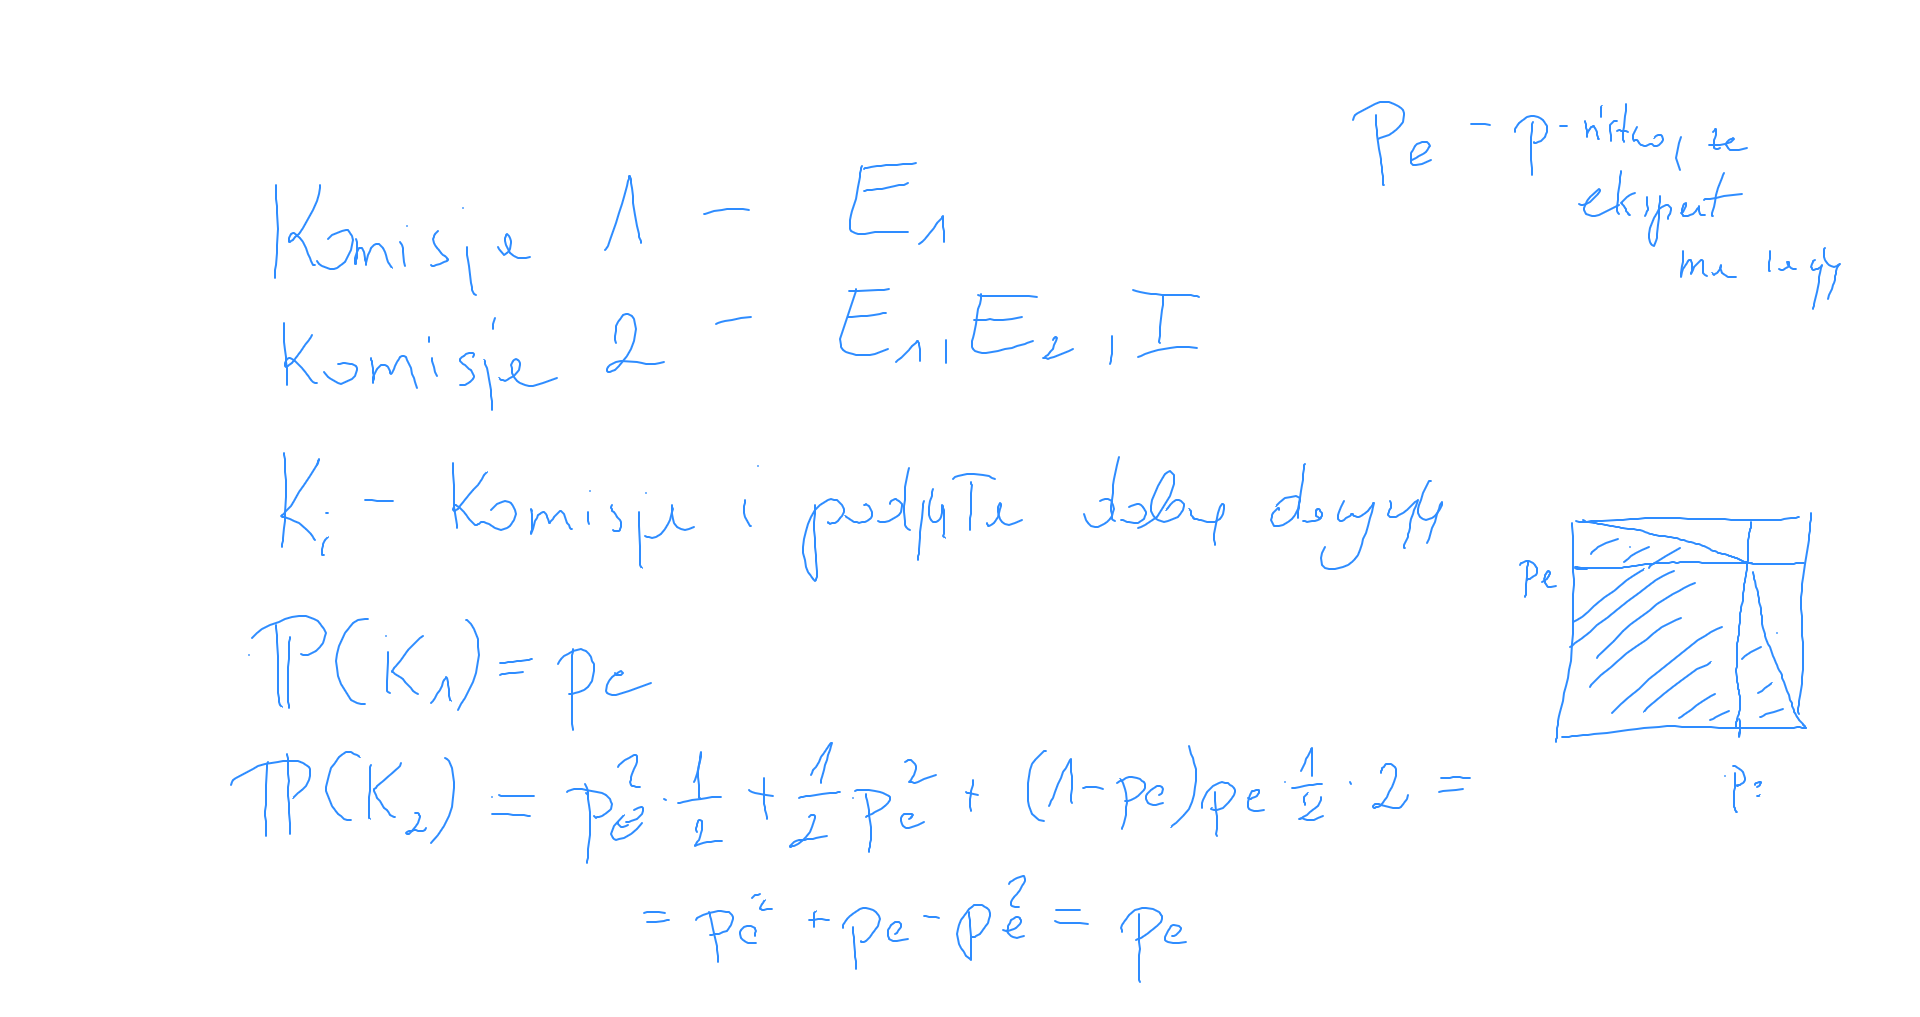 Pe - p-ństwo, że
ekspert
ma rację
Komisja 1 - E₁
Komisja 2 - E₁, E₂, I
Kᵢ - Komisja i podjęła dobrą decyzję
ℙ(K₁) = pe
ℙ(K₂) = pe² · 1/2 + 1/2 pe² + (1-pe)pe · 1/2 · 2 =
= pe² + pe - pe² = pe
pe